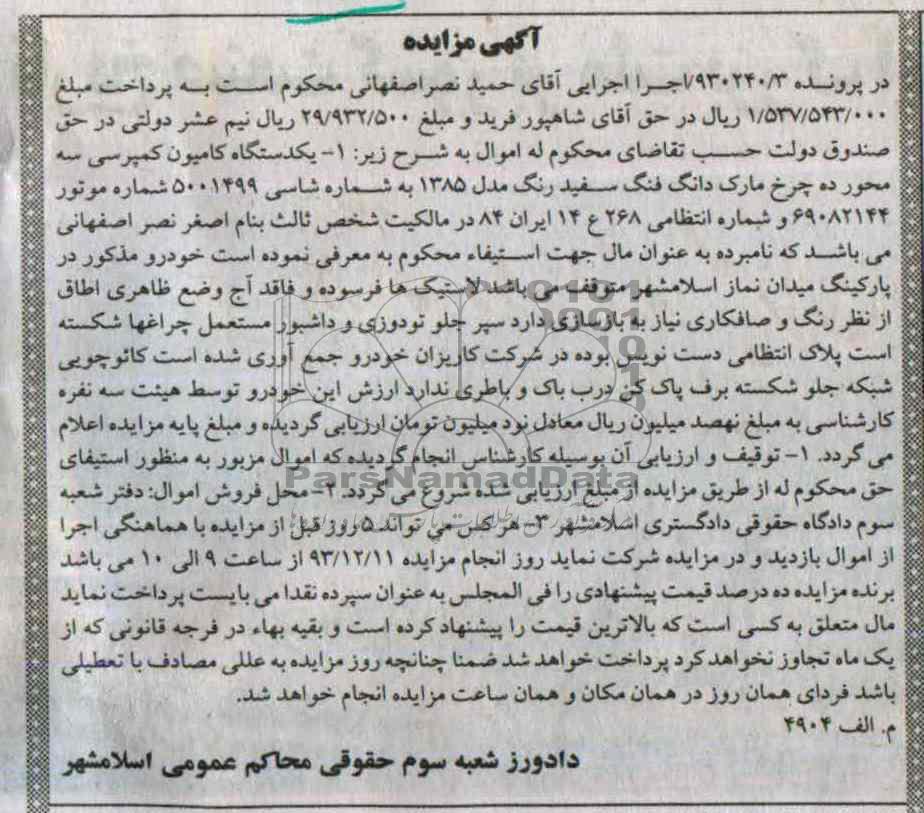 آگهی مزایده
در پرونده ۹۳۰۲۴۰/۳/اجرا اجرایی آقای حمید نصراصفهانی محکوم است به پرداخت مبلغ
۱/۵۳۷/۵۴۳/۰۰۰ ریال در حق آقای شاهپور فرید و مبلغ ۲۹/۹۳۲/۵۰۰ ریال نیم عشر دولتی در حق
صندوق دولت حسب تقاضای محکوم له اموال به شرح زیر: ۱- یکدستگاه کامیون کمپرسی سه
محور ده چرخ مارک دانگ فنگ سفید رنگ مدل ۱۳۸۵ به شماره شاسی ۵۰۰۱۴۹۹ شماره موتور
۶۹۰۸۲۱۴۴ و شماره انتظامی ۲۶۸ ع ۱۴ ایران ۸۴ در مالکیت شخص ثالث بنام اصغر نصر اصفهانی
می باشد که نامبرده به عنوان مال جهت استیفاء محکوم به معرفی نموده است خودرو مذکور در
پارکینگ میدان نماز اسلامشهر متوقف می باشد لاستیک ها فرسوده و فاقد آج وضع ظاهری اطاق
از نظر رنگ و صافکاری نیاز به بازسازی دارد سپر جلو تودوزی و داشبور مستعمل چراغها شکسته
است پلاک انتظامی دست نویس بوده در شرکت کاریزان خودرو جمع آوری شده است کائوچویی
شبکه جلو شکسته برف پاک کن درب باک و باطری ندارد ارزش این خودرو توسط هیئت سه نفره
کارشناسی به مبلغ نهصد میلیون ریال معادل نود میلیون تومان ارزیابی گردیده و مبلغ پایه مزایده اعلام
می گردد. ۱- توقیف و ارزیابی آن بوسیله کارشناس انجام گردیده که اموال مزبور به منظور استیفای
حق محکوم له از طریق مزایده از مبلغ ارزیابی شده شروع می گردد. ۲- محل فروش اموال: دفتر شعبه
سوم دادگاه حقوقی دادگستری اسلامشهر ۳- هر کس می تواند ۵ روز قبل از مزایده با هماهنگی اجرا
از اموال بازدید و در مزایده شرکت نماید روز انجام مزایده ۹۳/۱۲/۱۱ از ساعت ۹ الی ۱۰ می باشد
برنده مزایده ده درصد قیمت پیشنهادی را فی المجلس به عنوان سپرده نقدا می بایست پرداخت نماید
مال متعلق به کسی است که بالاترین قیمت را پیشنهاد کرده است و بقیه بهاء در فرجه قانونی که از
یک ماه تجاوز نخواهد کرد پرداخت خواهد شد ضمنا چنانچه روز مزایده به عللی مصادف با تعطیلی
باشد فردای همان روز در همان مکان و همان ساعت مزایده انجام خواهد شد.
م. الف ۴۹۰۴
دادورز شعبه سوم حقوقی محاکم عمومی اسلامشهر
ParsNamadData